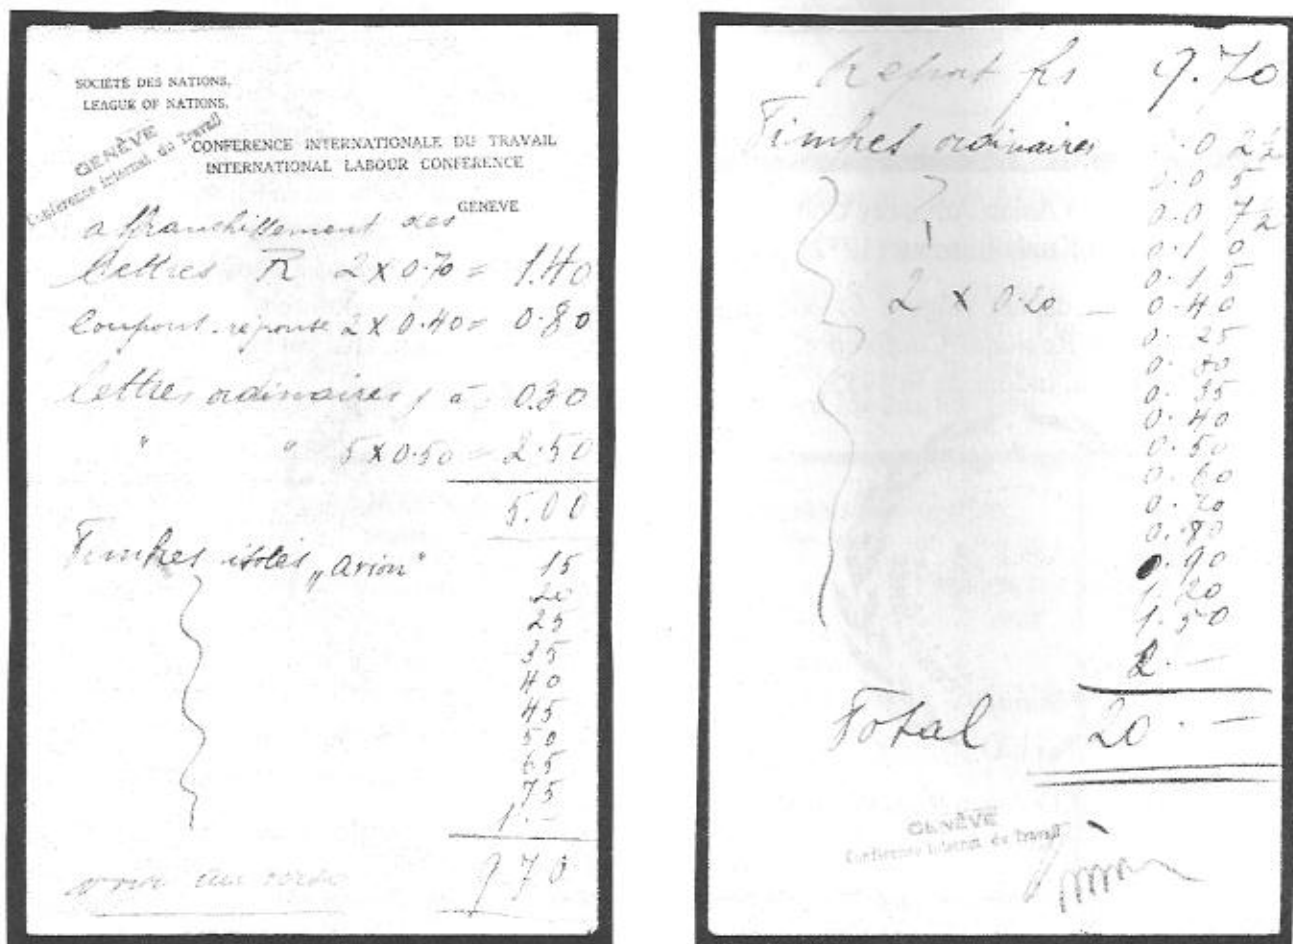 SOCIÉTÉ DES NATIONS.
LEAGUE OF NATIONS.
GENÈVE
Conférence internat. du Travail
CONFERENCE INTERNATIONALE DU TRAVAIL
INTERNATIONAL LABOUR CONFERENCE
GENÈVE
affranchissement des
lettres R 2 x 0.70 = 1.40
coupons-réponse 2 x 0.40 = 0.80
lettres ordinaires 1 à 0.30
" " 5 x 0.50 = 2.50
5.00
Timbres isolés „Avion" 15
20
25
35
40
45
50
65
75
1.-
voir au verso 9 70
Report frs 9.70
Timbres ordinaires 0 2½
0.0 5
0.0 7½
0.1 0
0.1 5
2 x 0.20 – 0.40
0.25
0.30
0.35
0.40
0.50
0.60
0.70
0.80
0.90
1.20
1.50
2.—
Total 20.—
GENÈVE
Conférence internat. du Travail